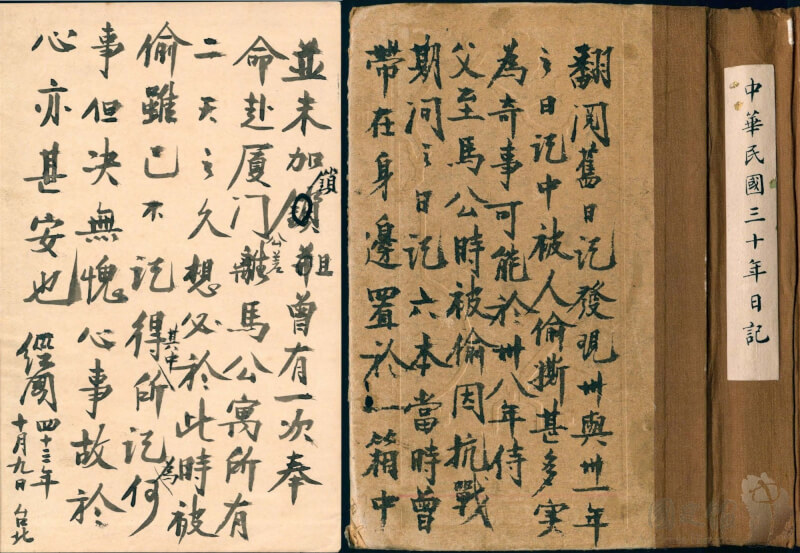 中華民國三十年日記
翻閱舊日記發現卅與卅一年
之日記中被人偷撕甚多实
為奇事可能於卅八年侍
父至馬公時被偷因抗戰
期间之日記六本當時曾
帶在身邊置於一箱中
並未加鎖且曾有一次奉
命赴厦门公差離馬公寓所有
二天之久想必於此時被
偷雖已不記得其中所記為何
事但决無愧心事故於
心亦甚安也
經國 四十三年
十月九日 台北